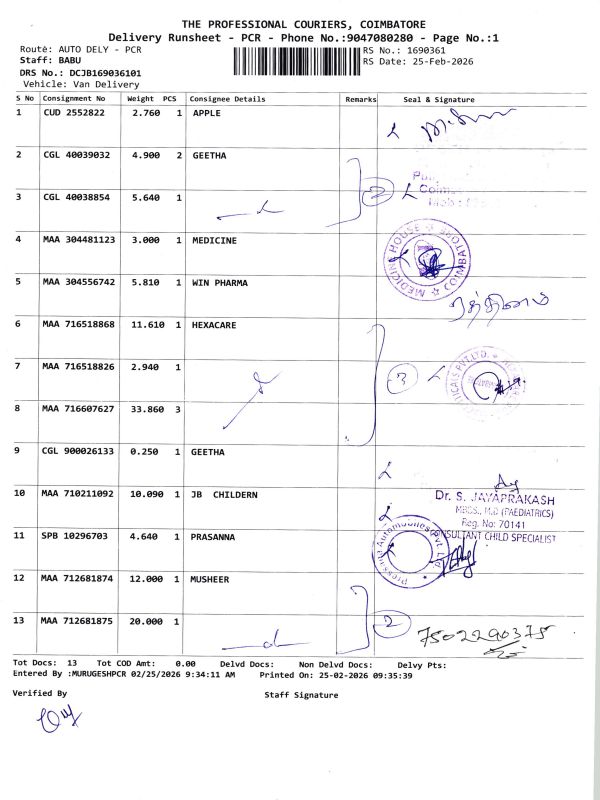 THE PROFESSIONAL COURIERS, COIMBATORE
Delivery Runsheet - PCR - Phone No.:9047080280 - Page No.:1
Route: AUTO DELY - PCR
RS No.: 1690361
Staff: BABU
RS Date: 25-Feb-2026
DRS No.: DCJB169036101
Vehicle: Van Delivery
S No Consignment No Weight PCS Consignee Details Remarks Seal & Signature
1 CUD 2552822 2.760 1 APPLE
2 CGL 40039032 4.900 2 GEETHA
3 CGL 40038854 5.640 1
2
4 MAA 304481123 3.000 1 MEDICINE
MEDICINE HOUSE COIMBATORE
5 MAA 304556742 5.810 1 WIN PHARMA
6 MAA 716518868 11.610 1 HEXACARE
7 MAA 716518826 2.940 1
3
8 MAA 716607627 33.860 3
9 CGL 900026133 0.250 1 GEETHA
10 MAA 710211092 10.090 1 JB CHILDERN
Dr. S. JAYAPRAKASH
MBBS., M.D (PAEDIATRICS)
Reg. No: 70141
CONSULTANT CHILD SPECIALIST
11 SPB 10296703 4.640 1 PRASANNA
12 MAA 712681874 12.000 1 MUSHEER
13 MAA 712681875 20.000 1
2
7502290375
Tot Docs: 13 Tot COD Amt: 0.00 Delvd Docs: Non Delvd Docs: Delvy Pts:
Entered By :MURUGESHPCR 02/25/2026 9:34:11 AM Printed On: 25-02-2026 09:35:39
Verified By Staff Signature